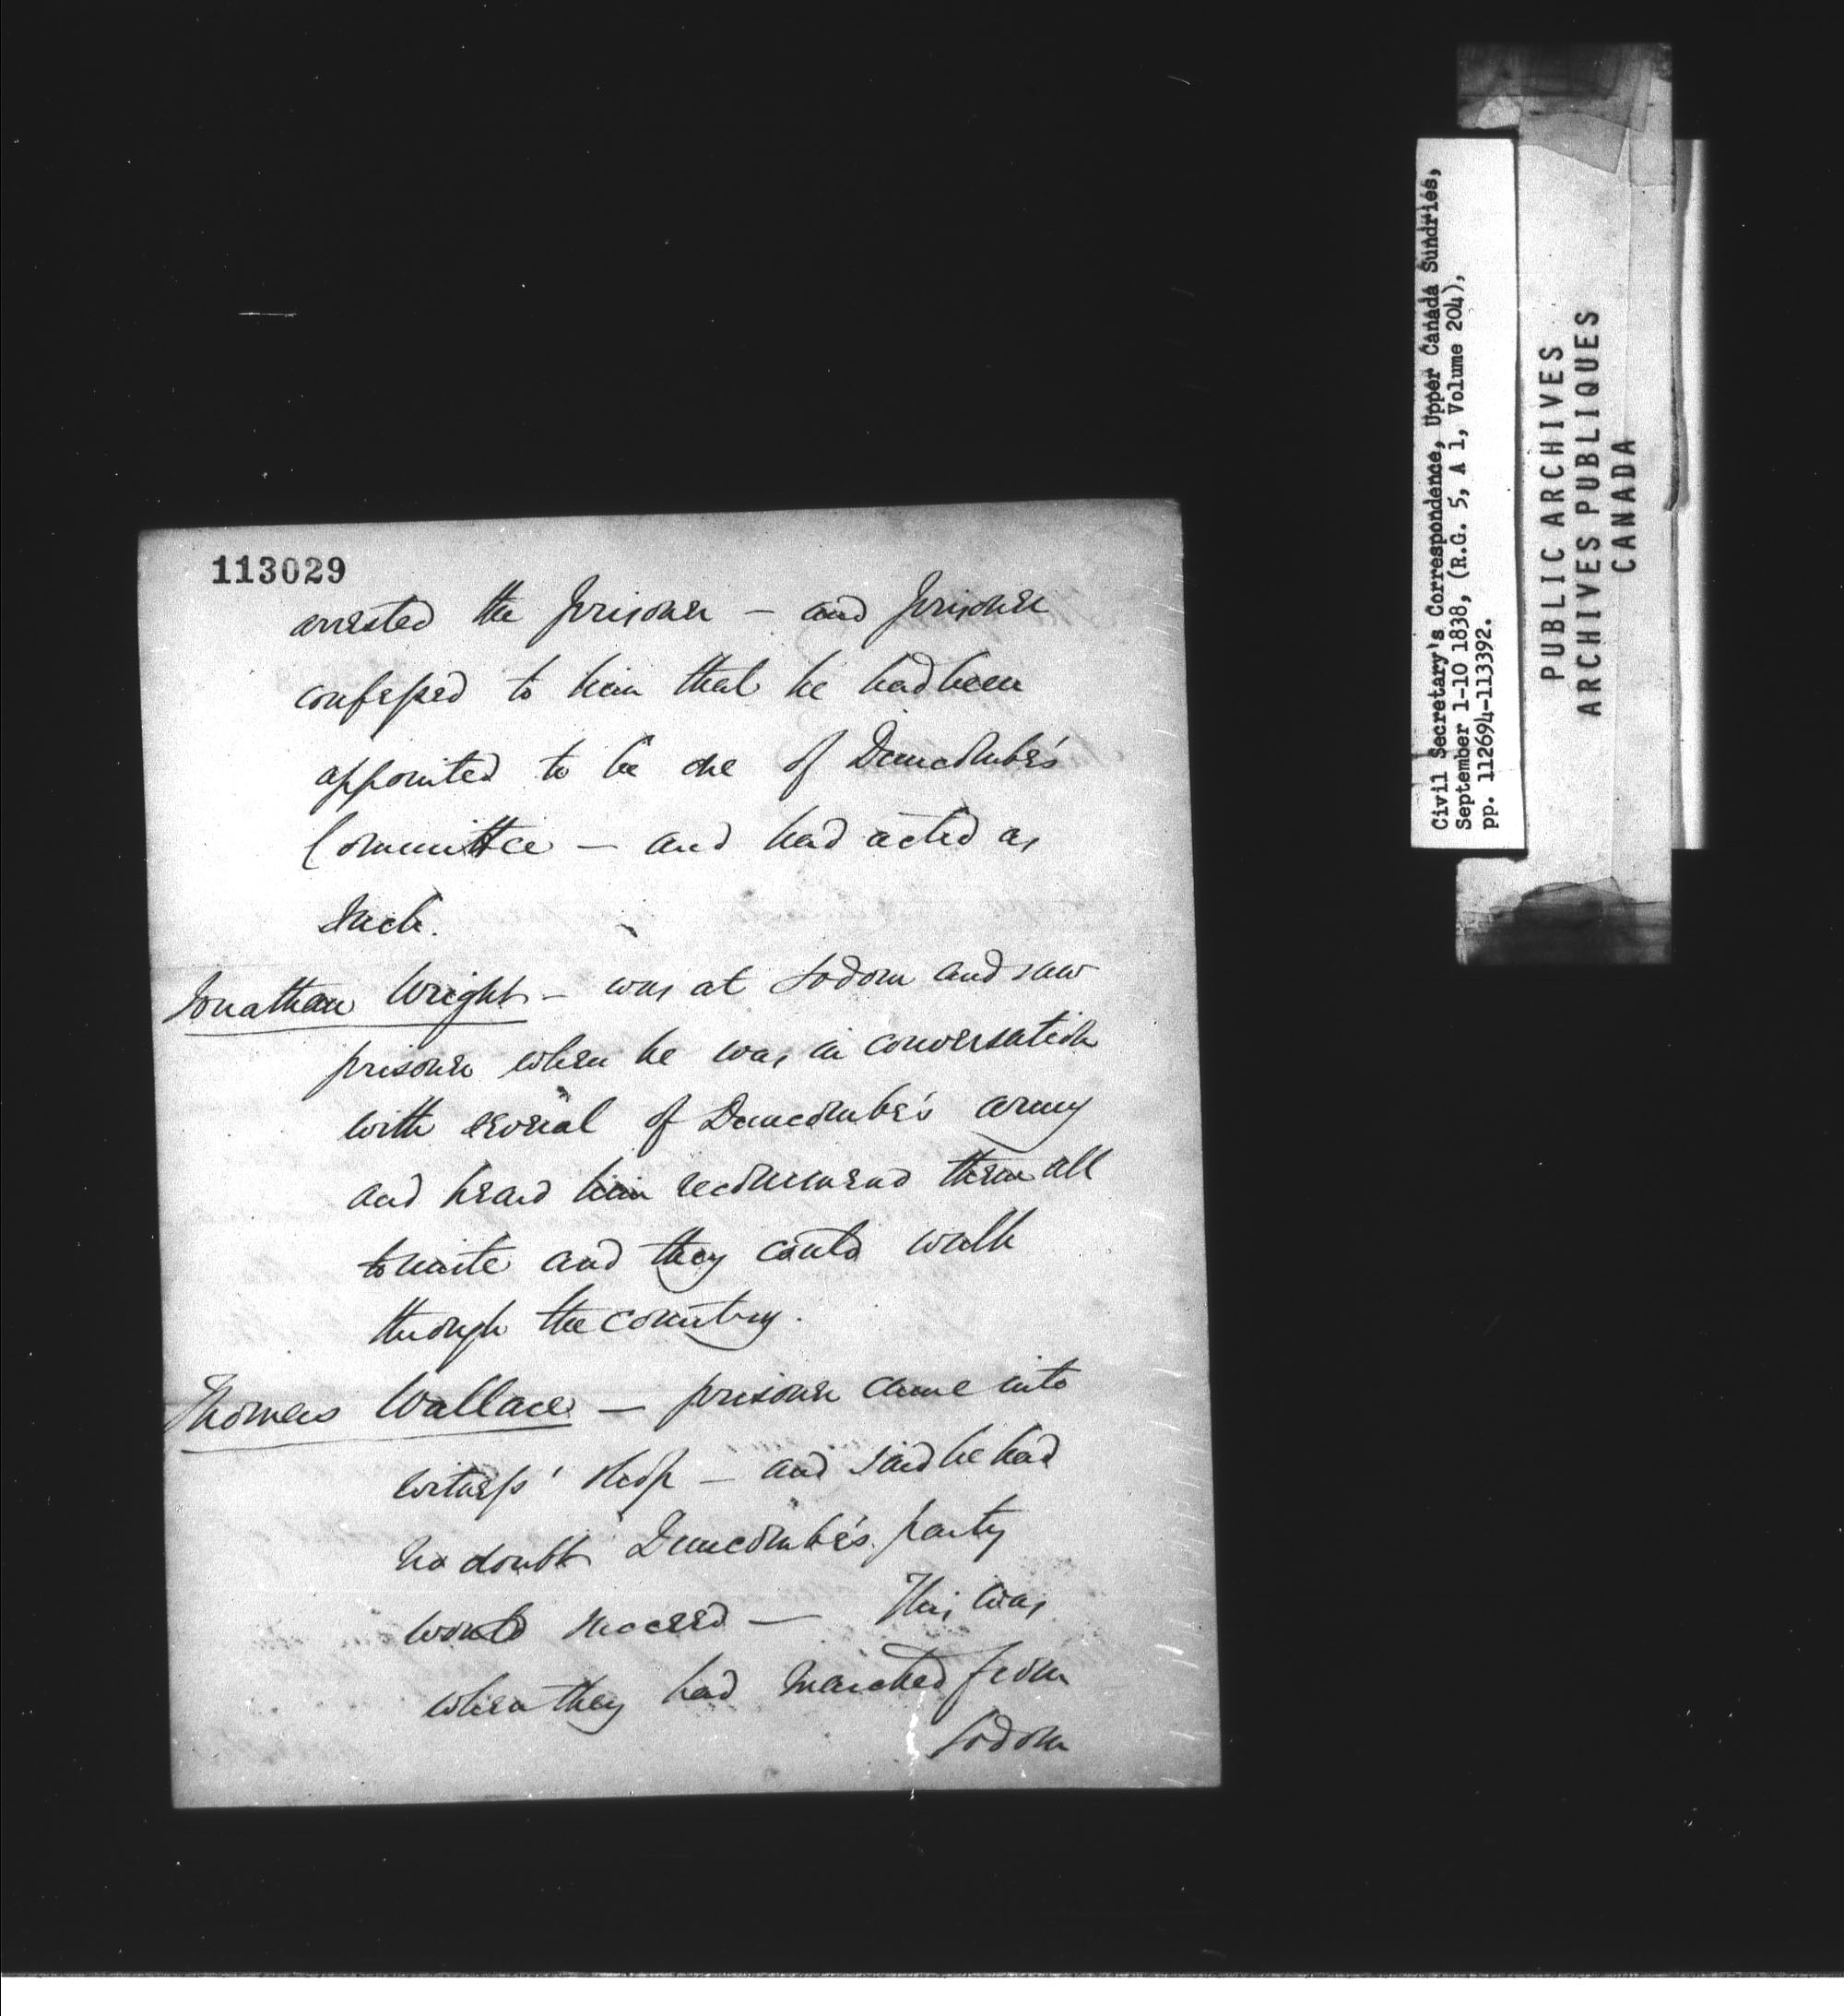 113029
arrested the prisoner — and prisoner
confessed to him that he had been
appointed to be one of Duncombe's
Committee — and had acted as
such.
Jonathan Wright — was at Sodom and saw
prisoner when he was in conversation
with several of Duncombe's army
and heard him recommend them all
to unite and they could walk
through the country.
Thomas Wallace — prisoner came into
witness' shop — and said he had
no doubt Duncombe's party
would succeed — This was
when they had marched from
Sodom
Civil Secretary's Correspondence, Upper Canada Sundries,
September 1-10 1838, (R.G. 5, A 1, Volume 204),
pp. 112694-113392.
PUBLIC ARCHIVES
ARCHIVES PUBLIQUES
CANADA